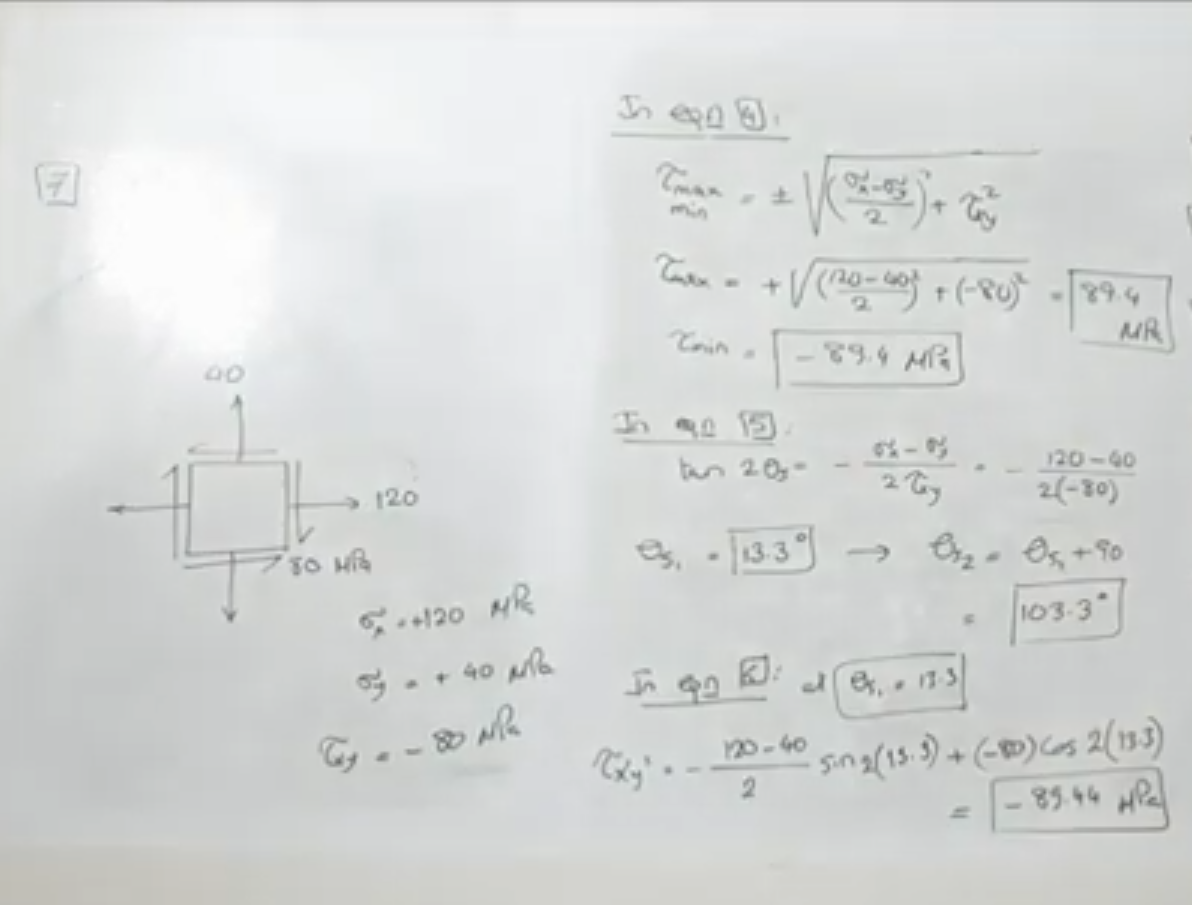 7
40
120
80 MPa
σx = +120 MPa
σy = + 40 MPa
τxy = - 80 MPa
In eqn 4:
τmax min = ± √((σx-σy)/2)² + τxy²
τmax = + √((120-40)/2)² + (-80)² = 89.4 MPa
τmin = - 89.4 MPa
In eqn 5:
tan 2θs = - (σx - σy)/(2 τxy) = - (120-40)/(2(-80))
θs₁ = 13.3° → θs₂ = θs₁ + 90
= 103.3°
In eqn 6: at θs₁ = 13.3
τx'y' = - (120-40)/2 sin 2(13.3) + (-80) cos 2(13.3)
= - 89.44 MPa